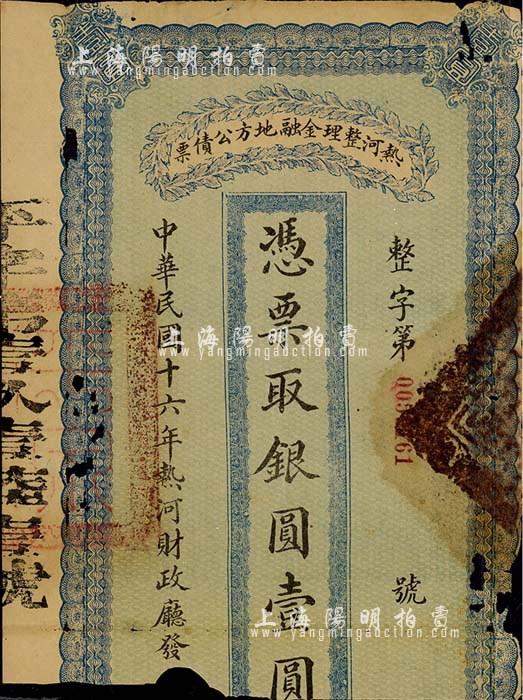 上海陽明拍賣
www.yangmingauction.com
熱河整理金融地方公債票
整字第
號
憑票取銀圓壹圓
中華民國十六年熱河財政廳發
上海陽明拍賣
www.yangmingauction.com
上海陽明拍賣
www.yangmingauction.com